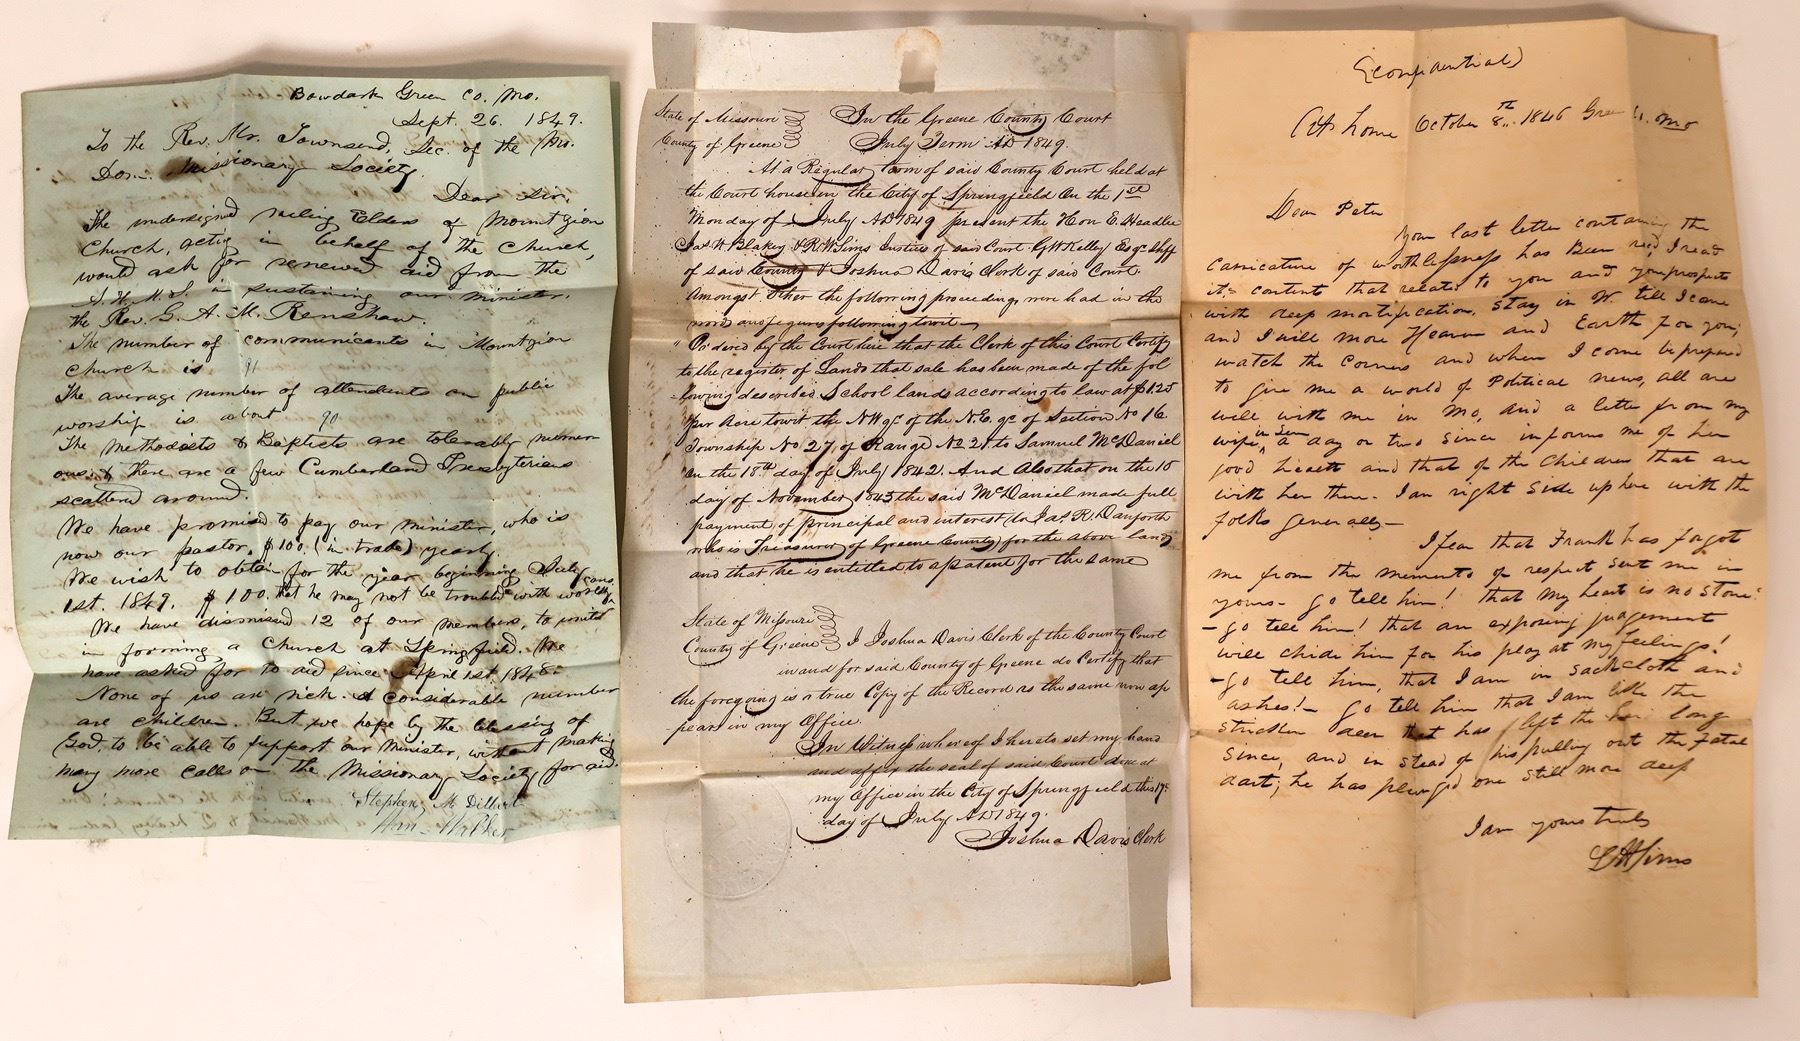 Bowdark Green Co. Mo.
Sept. 26. 1849.
To the Rev. Mr. Townsend, Sec. of the Mo.
Dom. Missionary Society.
Dear Sir,
The undersigned ruling Elders of Mount Zion
Church, acting in behalf of the Church,
would ask for renewed aid from the
A. H. M. S. in sustaining our minister,
the Rev. G. A. M. Renshaw.
The number of communicants in Mount Zion
Church is 91
The average number of attendants on public
worship is about 90
The Methodists & Baptists are tolerably numer
ous. & there are a few Cumberland Presbyterians
scattered around.
We have promised to pay our minister, who is
now our pastor, $100. (in trade) yearly.
We wish to obtain for the year beginning July
1st. 1849. $100. that he may not be troubled with worldly cares.
We have dismissed 12 of our members, to unite
in forming a Church at Springfield. We
have asked for no aid since April 1st. 1848.
None of us are rich. A considerable number
are children. But we hope by the blessing of
God, to be able to support our minister, without making
many more calls on the Missionary Society for aid.
Stephen M. Dilbert
Walker
State of Missouri
County of Greene
In the Greene County Court
July Term AD 1849.
At a Regular term of said County Court held at
the Court house in the City of Springfield on the 1st
Monday of July AD 1849 present the Hon E. Headlee
Jas W Blakey & R. W. Sims Justices of said Court. G W Kelley Esqr Shff
of said County & Joshua Davis Clerk of said Court.
Amongst other the following proceedings were had in the
words and figures following towit
"Ordered by the Court here that the Clerk of this Court Certify
to the register of Lands that sale has been made of the fol
lowing described School lands according to law at $1.25
per Acre towit the NW qr of the N.E. qr of Section No 16
Township No 27, of Range No 21 to Samuel McDaniel
on the 18th day of July 1842. And also that on the 10
day of November 1843 the said McDaniel made full
payment of principal and interest (to Jas. R. Danforth
who is Treasurer of Greene County) for the above land
and that he is entitled to a patent for the same
State of Missouri
County of Greene
I Joshua Davis Clerk of the County Court
in and for said County of Greene do Certify that
the foregoing is a true Copy of the Record as the same now ap
pears in my Office.
In Witness whereof I hereto set my hand
and affix the seal of said Court done at
my Office in the City of Springfield this 17th
day of July AD 1849.
Joshua Davis Clerk
(Confidential)
At home October 8th 1846 Mo
Dear Peter
Your last letter containing the
caricature of worthlessness has Been recd, I read
its content that relates to you and your prospects
with deep mortification, Stay in W. till I come
and I will move Heaven and Earth for you,
watch the Corners and when I come be prepared
to give me a world of Political news, all are
well with me in Mo, and a letter from my
wife, a day or two since informs me of her
good health and that of the Children that are
with her there. I am right Side up here with the
folks generally—
I fear that Frank has forgot
me from the memento of respect sent me in
yours— go tell him! that my heart is no stone!
—go tell him! that an exposing judgement
will chide him for his play at my feelings!
—go tell him, that I am in sackcloth and
ashes!— Go tell him that I am like the
stricken deer that has left the long
since, and in stead of his pulling out the fatal
dart; he has plunged one still more deep
I am yours truly
L H Sims